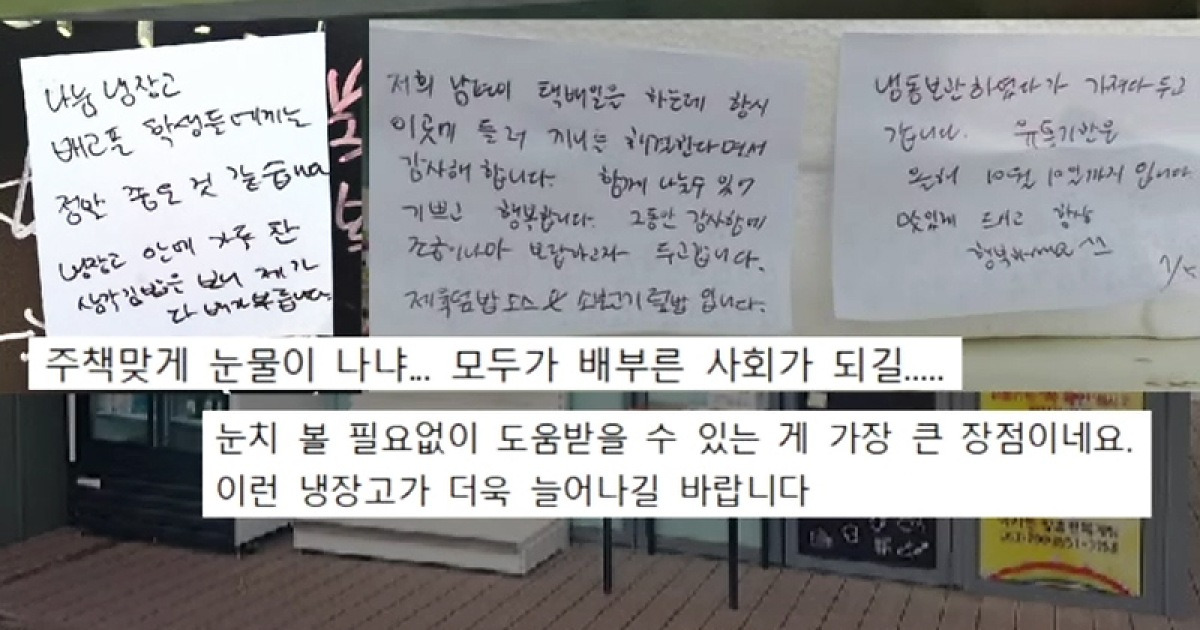 나눔 냉장고
배고픈 학생들에게는
정말 좋은 것 같습니다
냉장고 안에 가득 찬
삼각김밥을 보니 제가
다 배가 부릅니다.
저희 남편이 택배일을 하는데 항시
이곳에 들러 끼니를 해결한다면서
감사해 합니다. 함께 나눌수 있어
기쁘고 행복합니다. 그동안 감사함에
조금이나마 보답하고자 두고갑니다.
제육덮밥소스 & 소불고기덮밥 입니다.
냉동보관하였다가 가져다 두고
갑니다. 유통기한은
올해 10월 10일까지 입니다.
맛있게 드시고 항상
행복하세요
주책맞게 눈물이 나냐... 모두가 배부른 사회가 되길.....
눈치 볼 필요없이 도움받을 수 있는 게 가장 큰 장점이네요.
이런 냉장고가 더욱 늘어나길 바랍니다